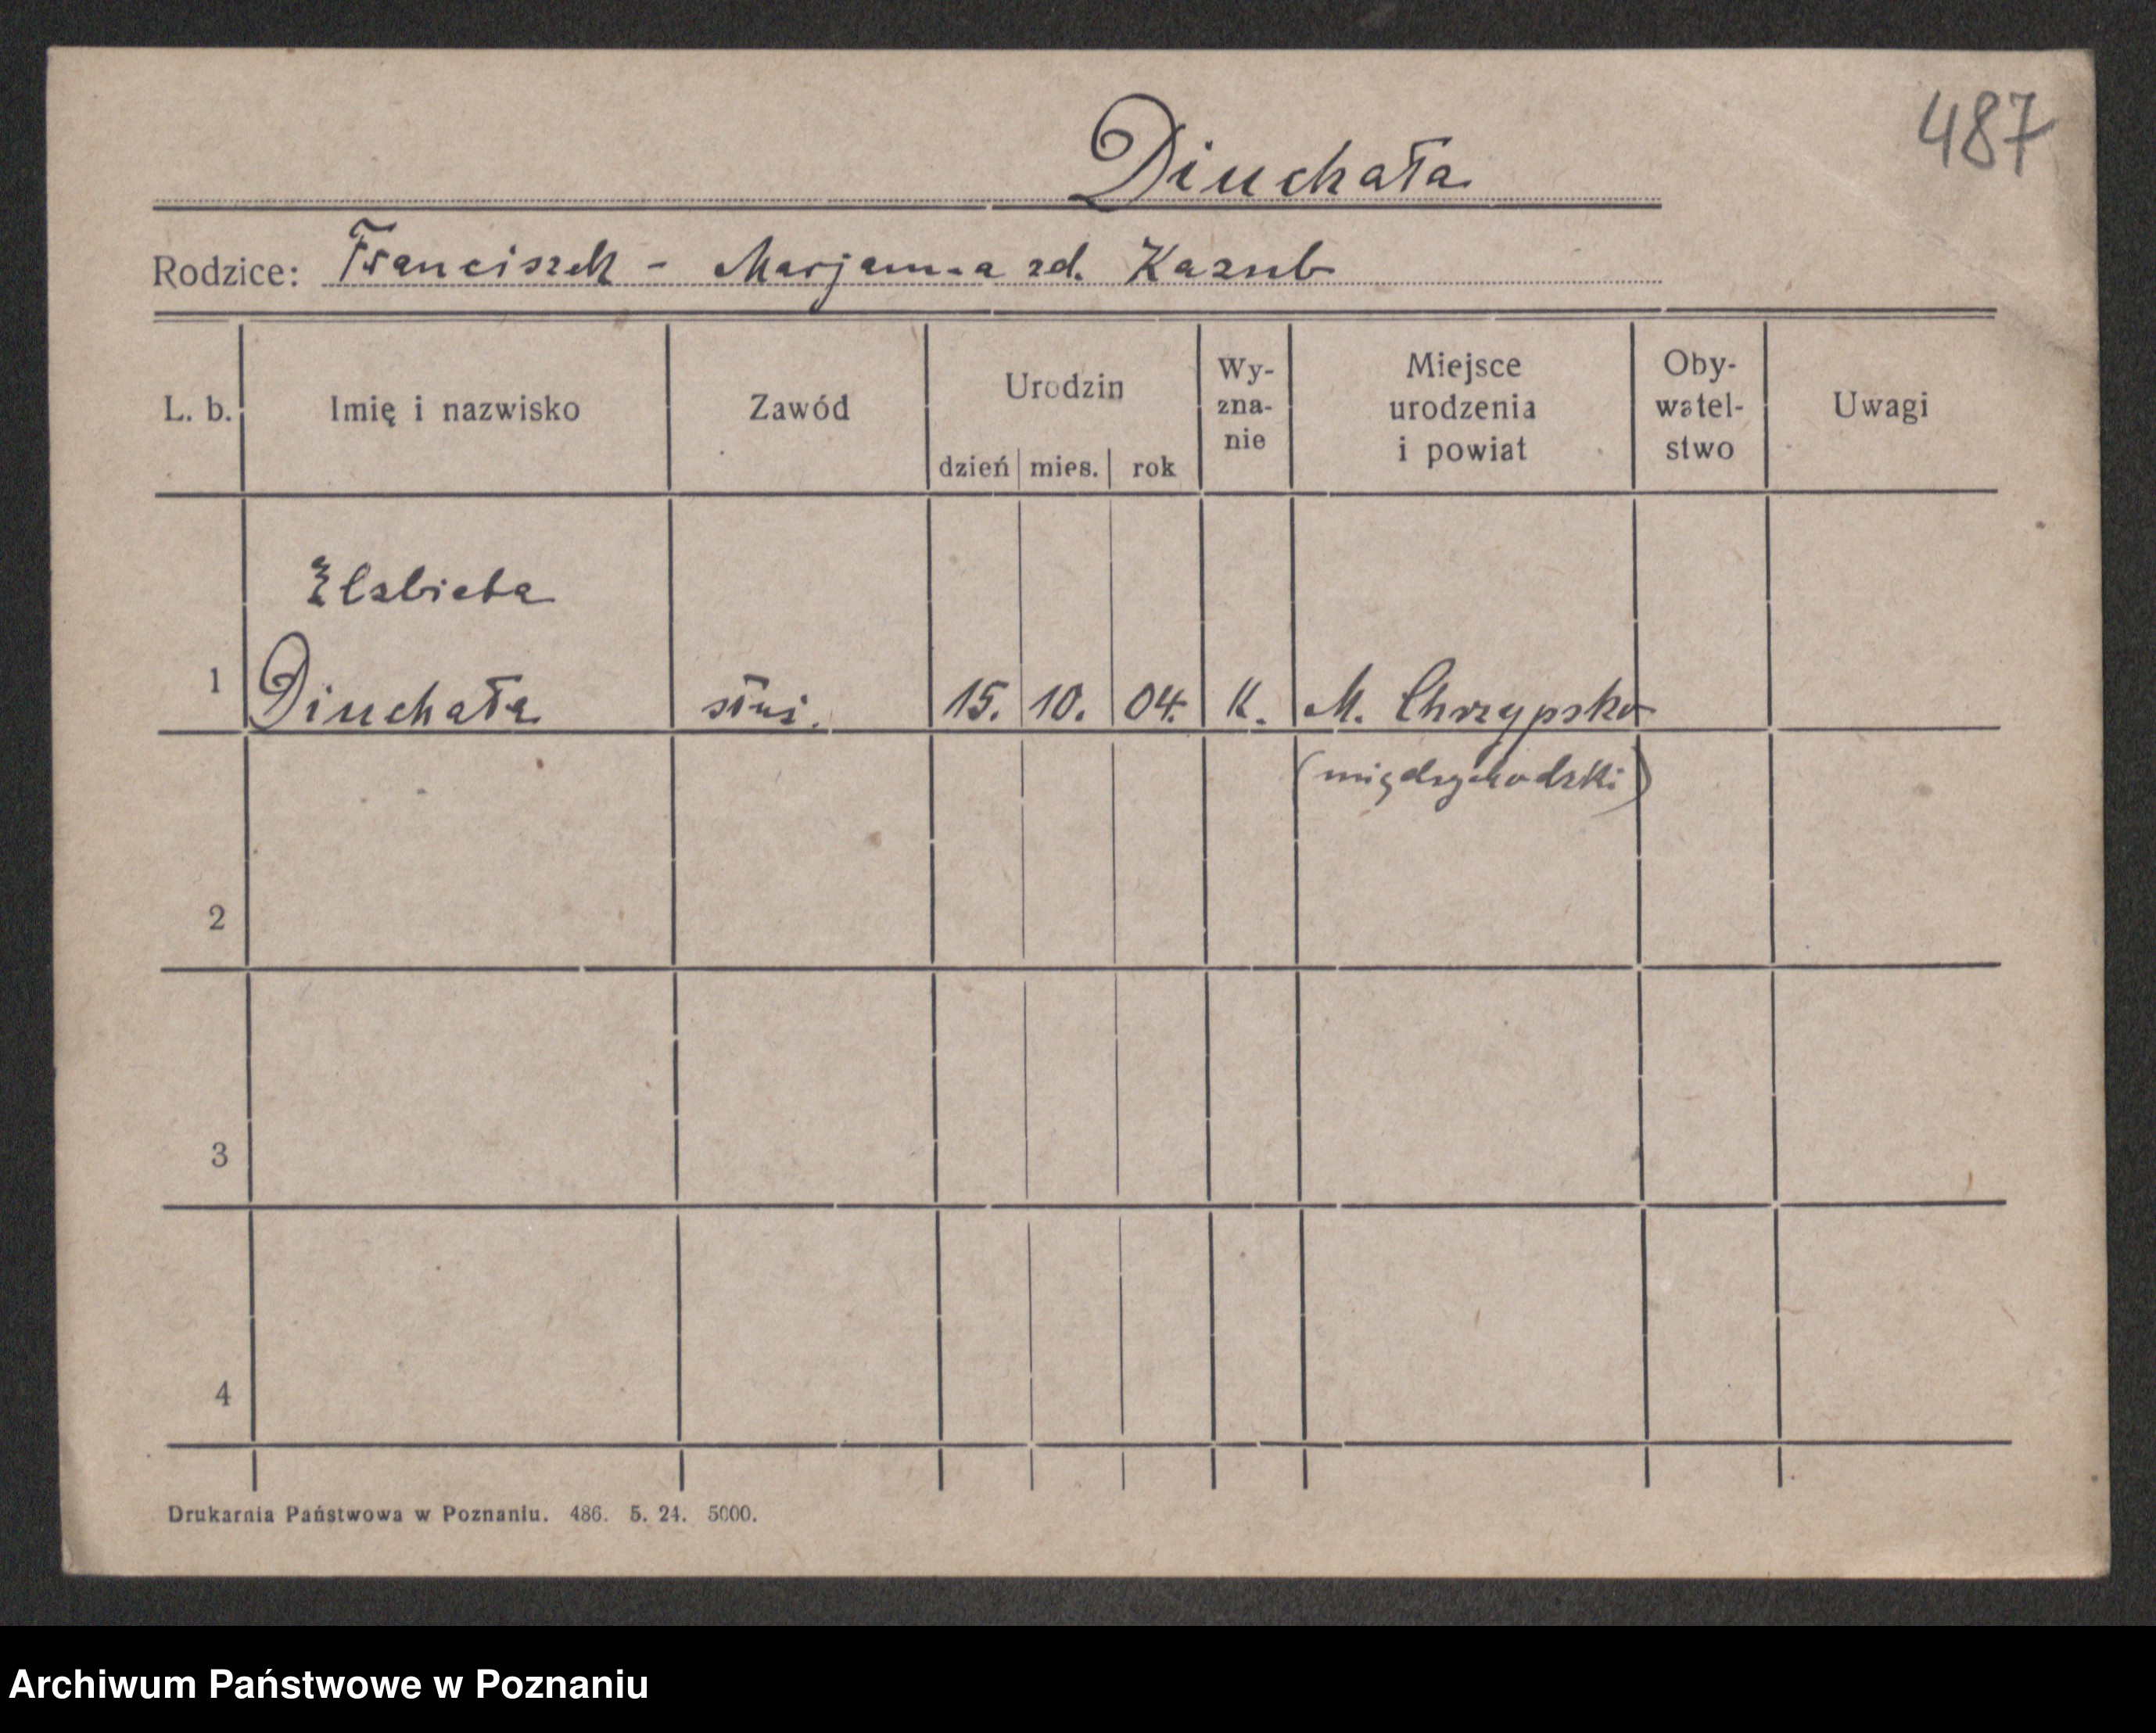 487
Diuchała
Rodzice: Franciszek - Marjanna zd. Kazub
L. b. Imię i nazwisko Zawód Urodzin dzień mies. rok Wy-zna-nie Miejsce urodzenia i powiat Oby-watel-stwo Uwagi
Elzbieta
1 Diuchała służ. 15. 10. 04. K. M. Chrzypsko
(międzychodzki)
2
3
4
Drukarnia Państwowa w Poznaniu. 486. 5. 24. 5000.
Archiwum Państwowe w Poznaniu